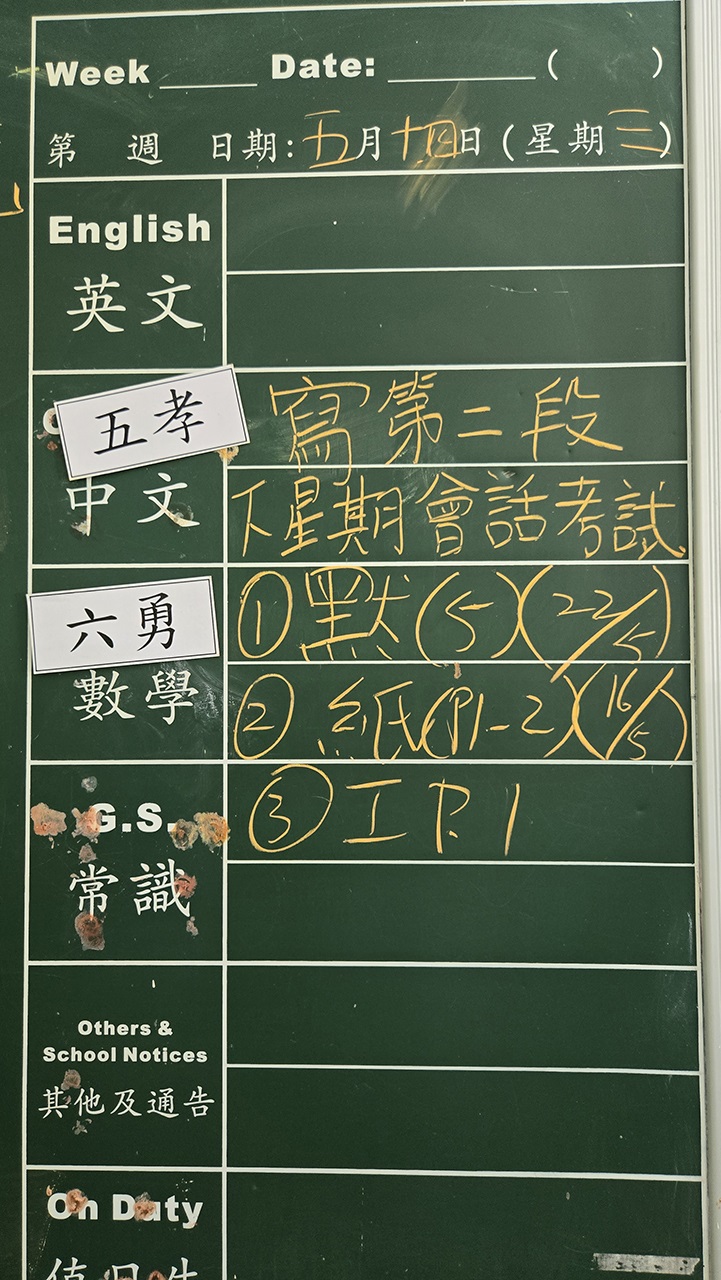 Week ____ Date: ________ ( )
第 週 日期:五月十四日(星期三)
English
英文
五孝
寫第二段
中文
下星期會話考試
六勇
①默(5)(22/5)
數學
②紙(P1-2)(16/5)
G.S.
③工P.1
常識
Others &
School Notices
其他及通告
On Duty
值日生